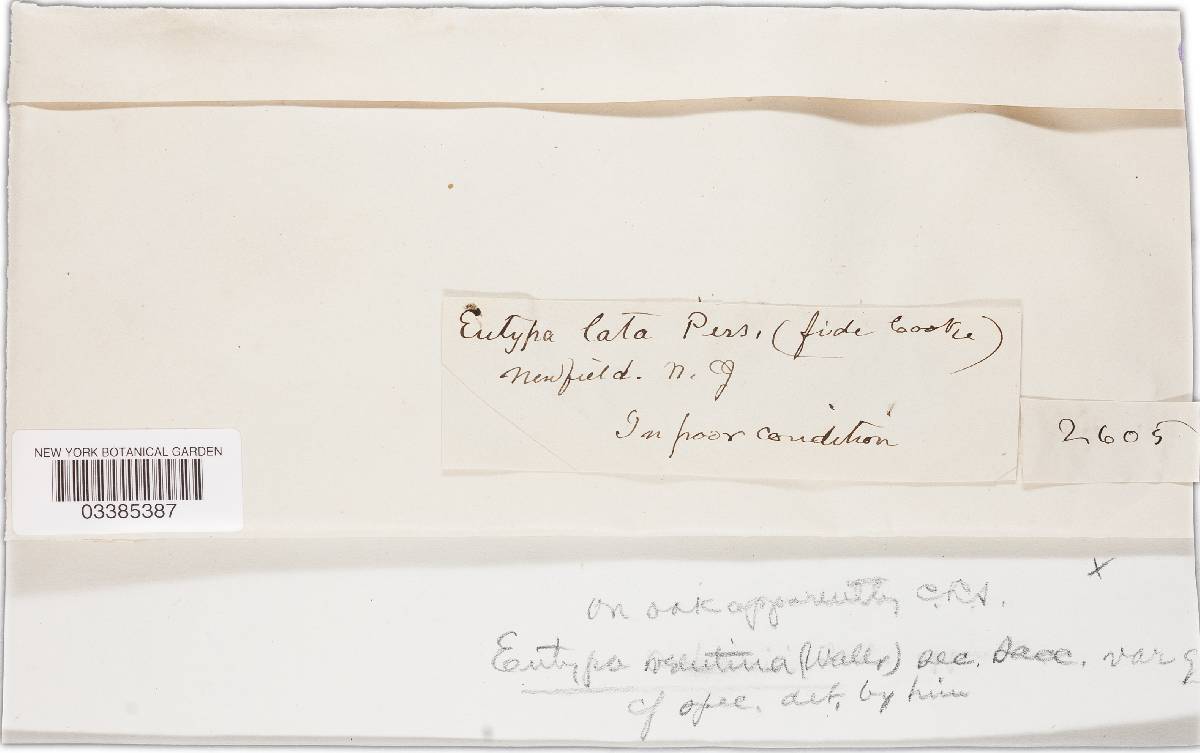 Eutypa lata Pers. (fide Cooke)
Newfield. N. J
In poor condition
2605
NEW YORK BOTANICAL GARDEN
03385387
x
on oak apparently C.L.S.
Eutypa velutina (Wallr) sec. Sacc. var
cf spec. det. by him